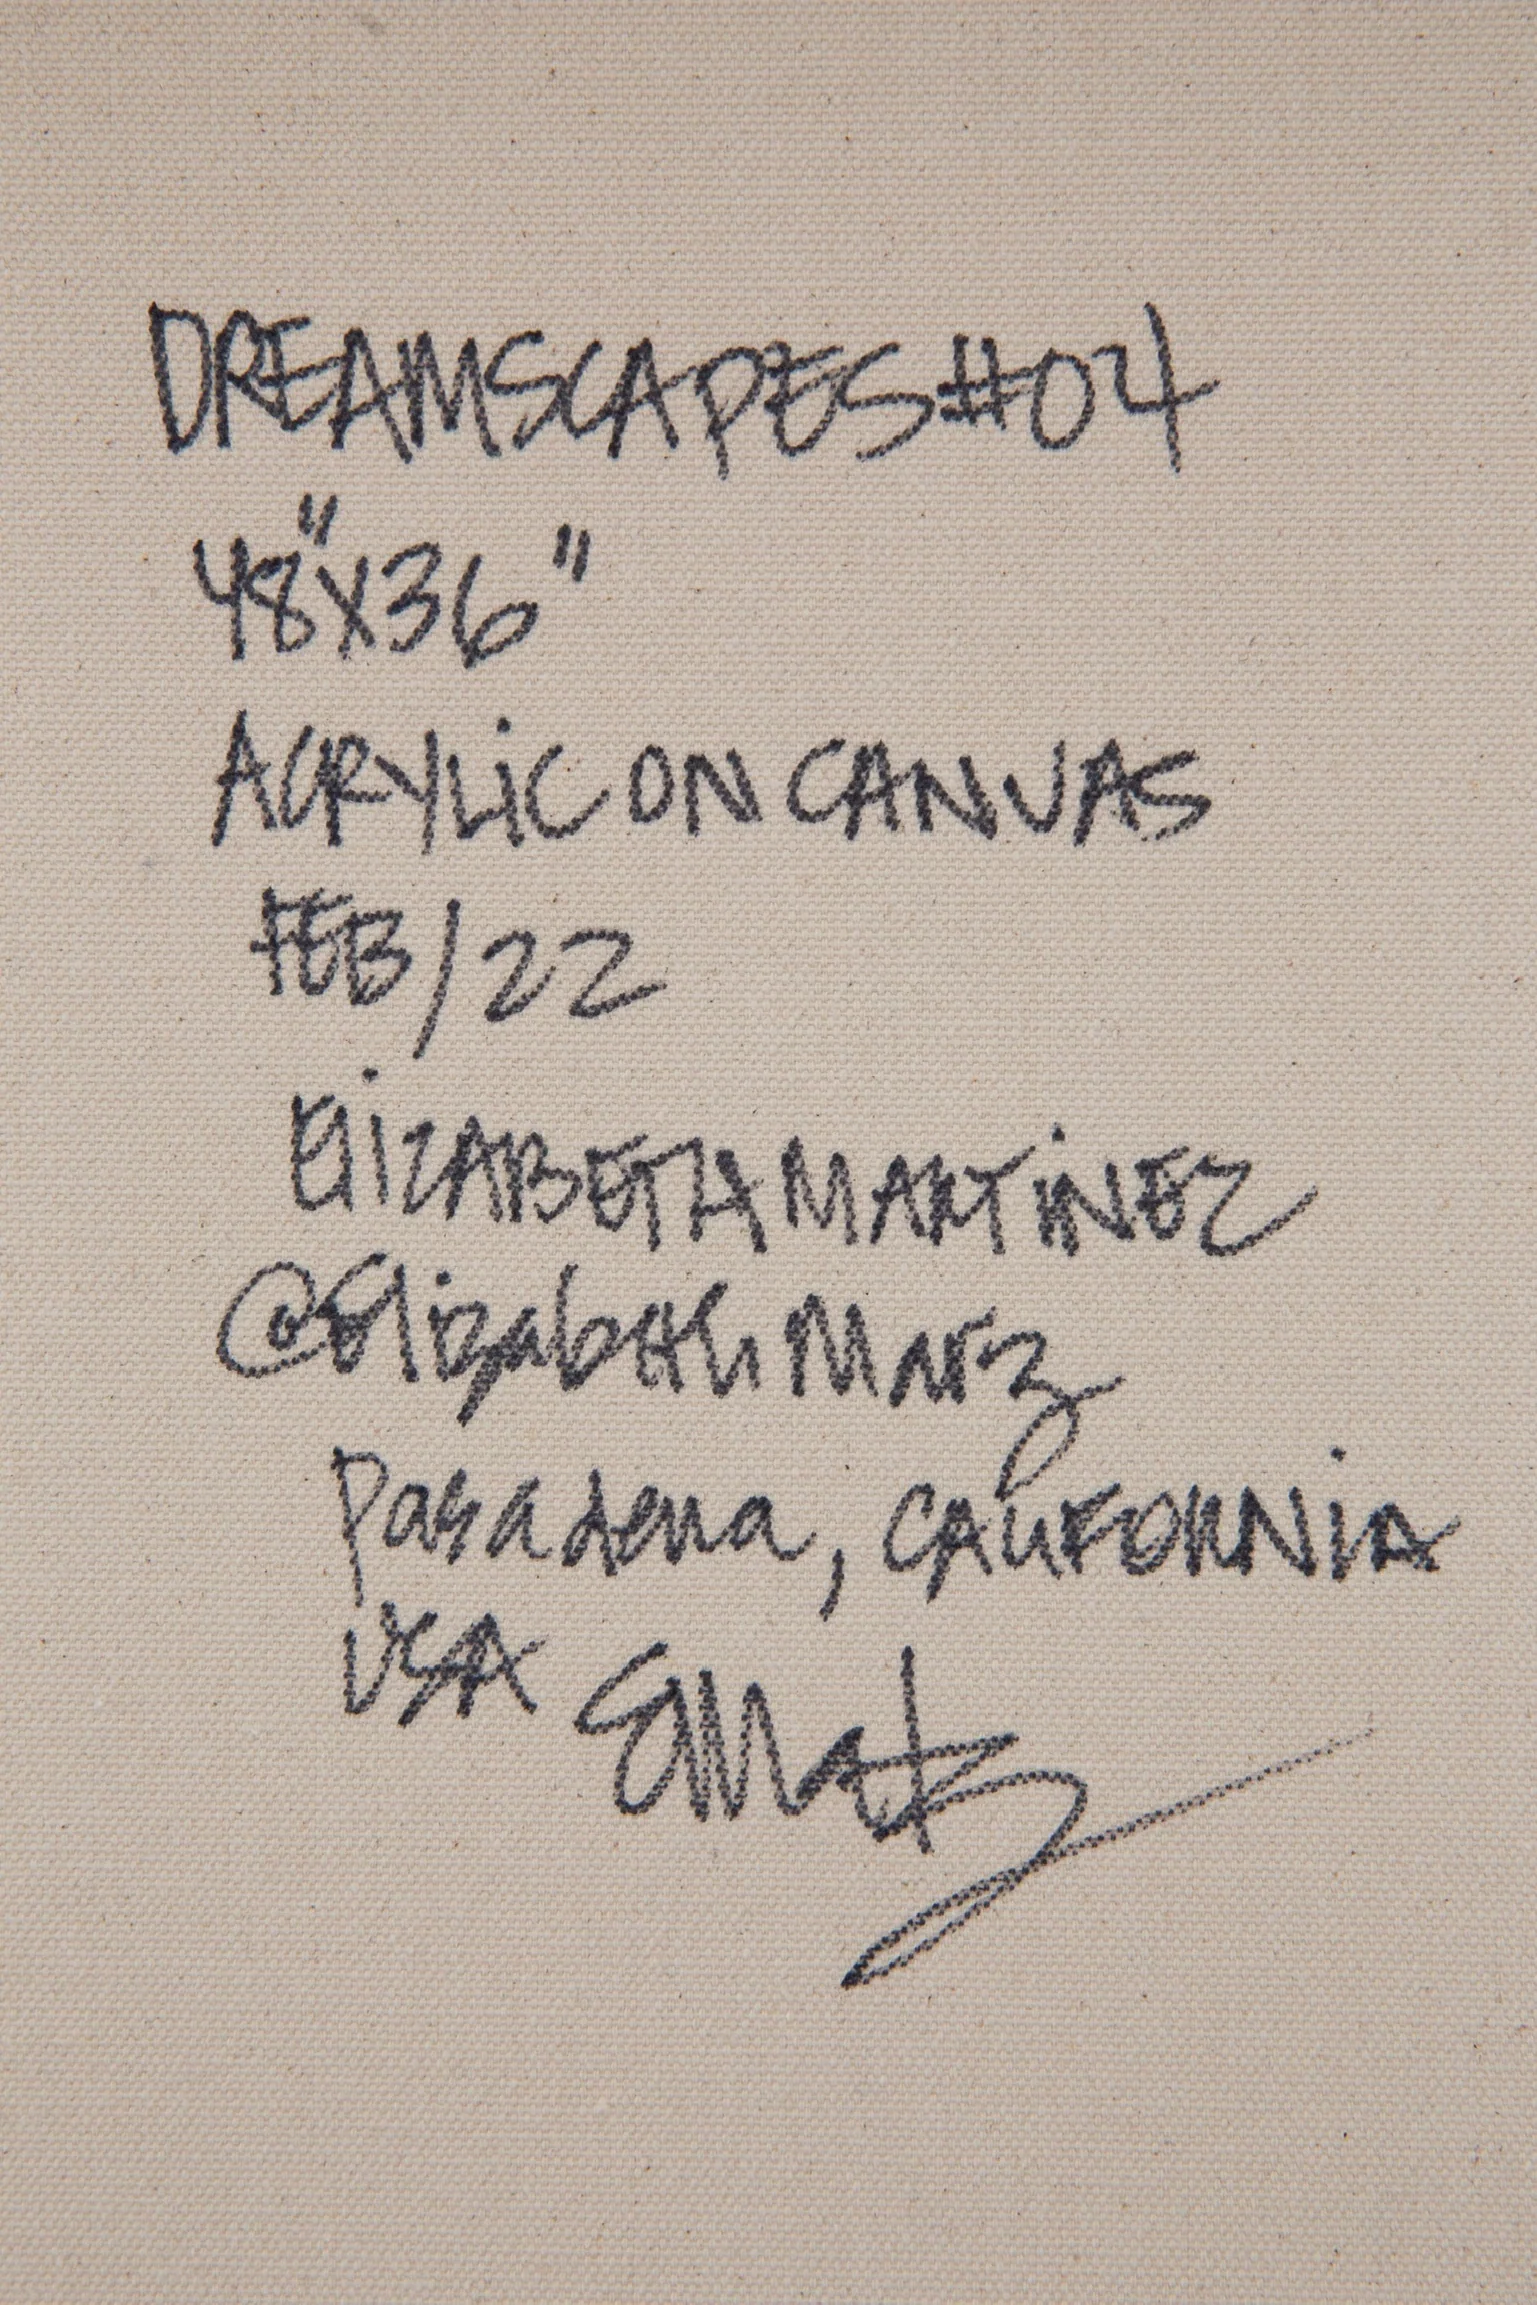 DREAMSCAPES #04
48"X36"
ACRYLiC ON CANVAS
FEB/22
ElizABETH MARTiNEZ
@ElizabethMarz
Pasadena, CALiFORNIA
USA